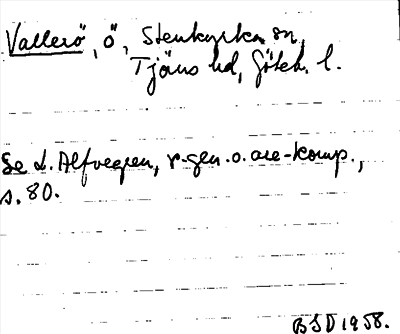 Vallerö, ö, Stenkyrka sn,
Tjörns hd, Göteb. l.
Se L. Alfvegren, r-gen. o. are-komp.,
s. 80.
BSD 1958.